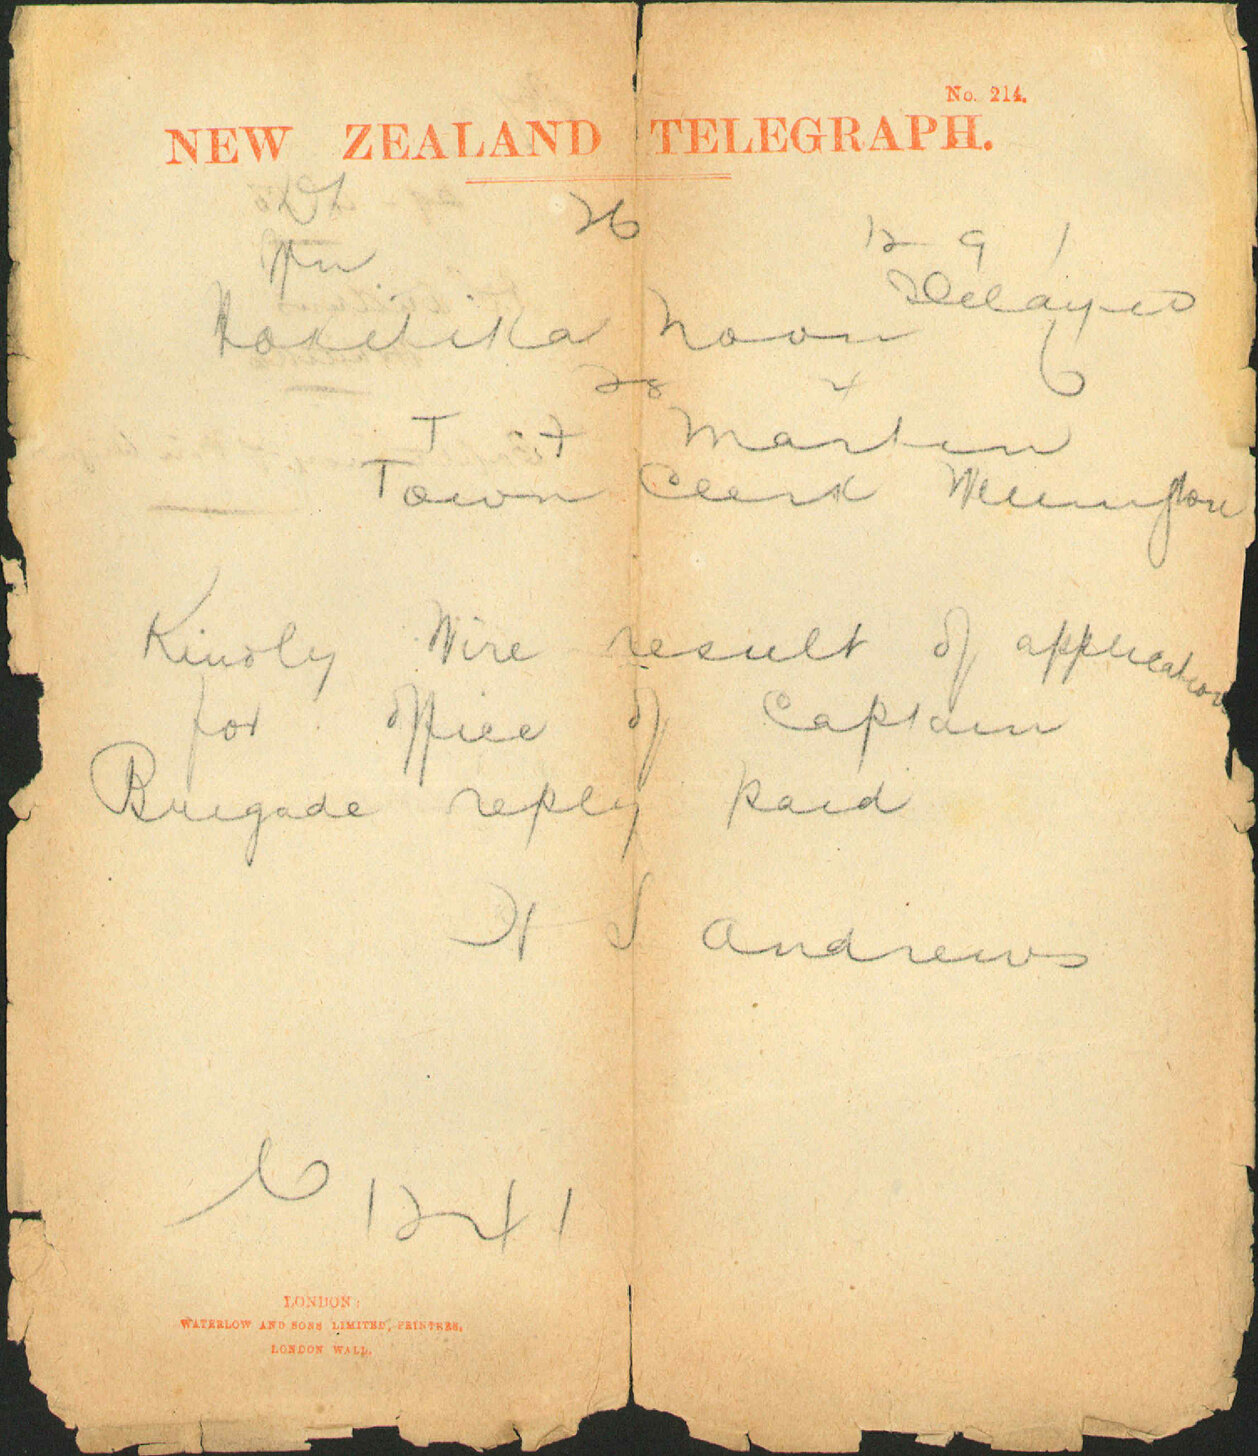 No. 214.
NEW ZEALAND TELEGRAPH.
26
12 9 1
Wn
Delayed
Hokitika Noon
28 4
To Martin
Town Clerk Wellington
Kindly Wire result of application
for office of Captain
Brigade reply paid
H S Andrews
12 41
LONDON:
WATERLOW AND SONS LIMITED, PRINTERS,
LONDON WALL.